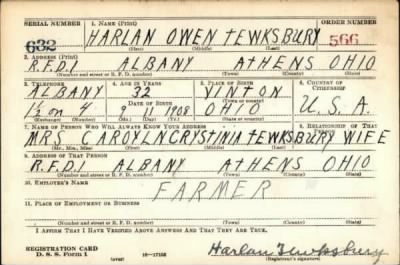 SERIAL NUMBER 1. NAME (Print) ORDER NUMBER
632 HARLAN OWEN TEWKSBURY 566
(First) (Middle) (Last)
2. ADDRESS (Print)
R.F.D.1 ALBANY ATHENS OHIO
(Number and street or R. F. D. number) (Town) (County) (State)
3. TELEPHONE 4. AGE IN YEARS 5. PLACE OF BIRTH 6. COUNTRY OF CITIZENSHIP
ALBANY 32 VINTON
DATE OF BIRTH (Town or county)
1½ on 4 9 11 1908 OHIO U.S.A.
(Exchange) (Number) (Mo.) (Day) (Yr.) (State or country)
7. NAME OF PERSON WHO WILL ALWAYS KNOW YOUR ADDRESS 8. RELATIONSHIP OF THAT PERSON
MRS CAROYLN CRYSTINIA TEWKSBURY WIFE
(Mr., Mrs., Miss) (First) (Middle) (Last)
9. ADDRESS OF THAT PERSON
R.F.D.1 ALBANY ATHENS OHIO
(Number and street or R. F. D. number) (Town) (County) (State)
10. EMPLOYER'S NAME
FARMER
11. PLACE OF EMPLOYMENT OR BUSINESS
(Number and street or R. F. D. number) (Town) (County) (State)
I AFFIRM THAT I HAVE VERIFIED ABOVE ANSWERS AND THAT THEY ARE TRUE.
REGISTRATION CARD Harlan Tewksbury
D. S. S. Form 1 (over) 16—17105 (Registrant's signature)